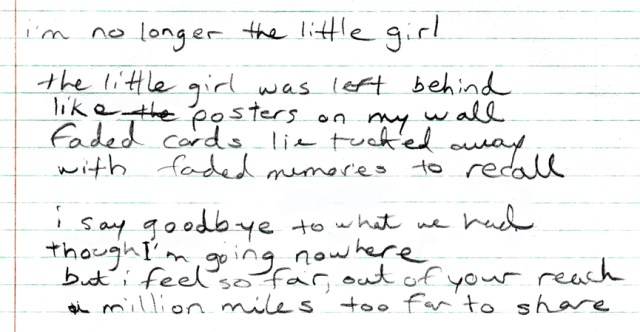 i'm no longer the little girl
the little girl was left behind
like the posters on my wall
faded cards lie tucked away
with faded memories to recall
i say goodbye to what we had
though I'm going nowhere
but i feel so far, out of your reach
a million miles too far to share